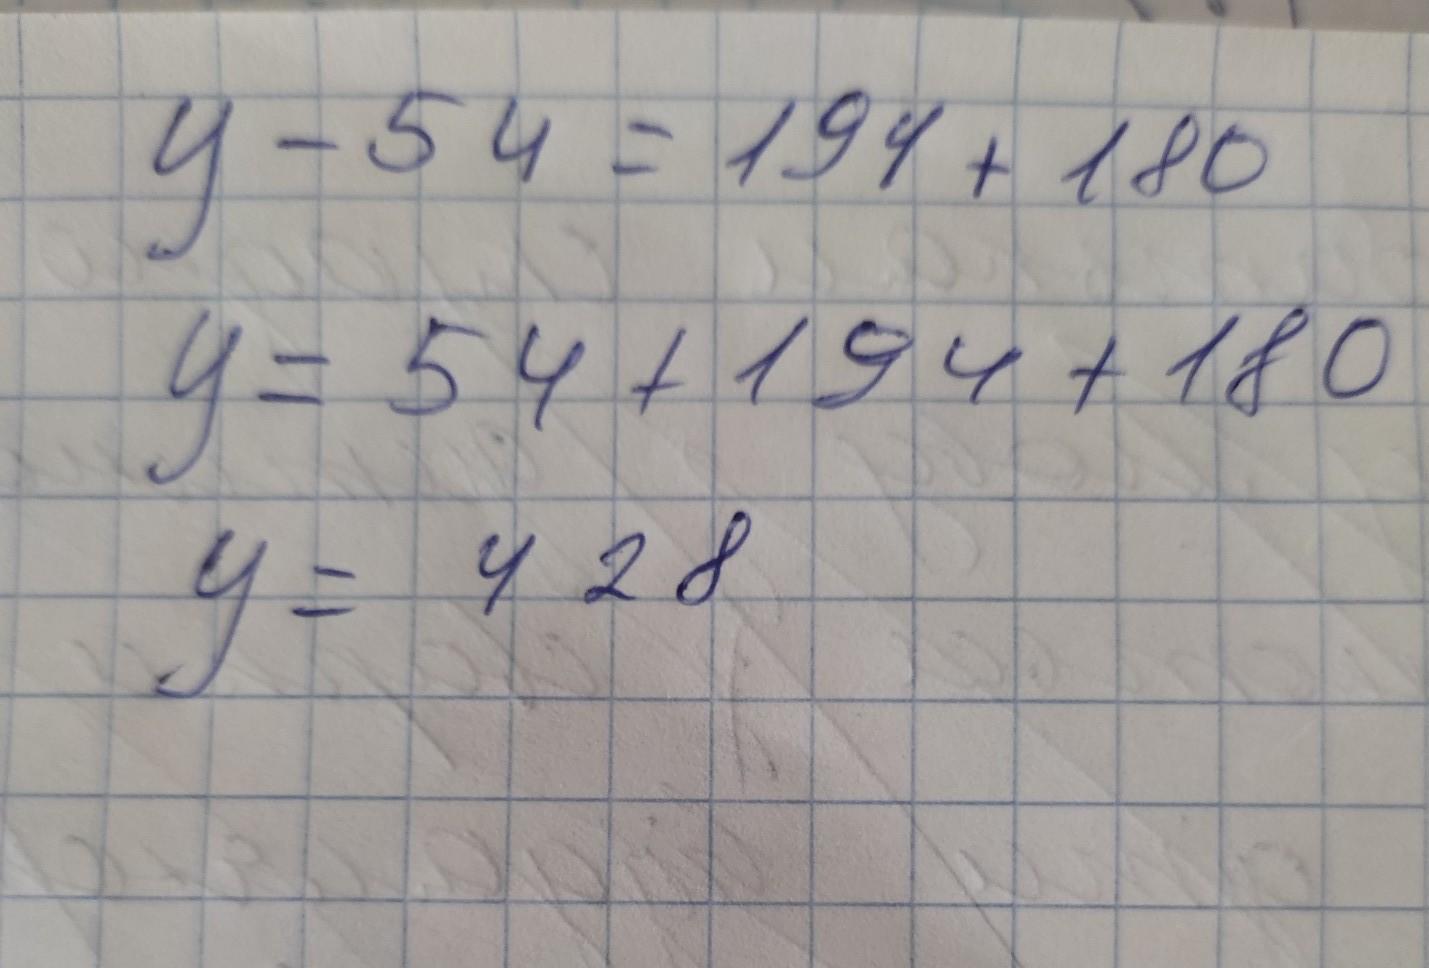 y - 54 = 194 + 180
y = 54 + 194 + 180
y = 428